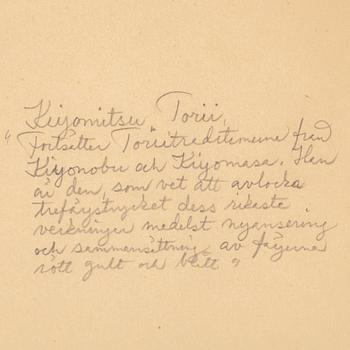 Kiyomitsu, Torii,
"Fortsätter Toriitraditionerna från
Kiyonobu och Kiyomasa. Han
är den, som vet att avlocka
trefärgstrycket dess rikaste
verkningar medelst nyansering
och sammansättning av färgerna
rött gult och blått"